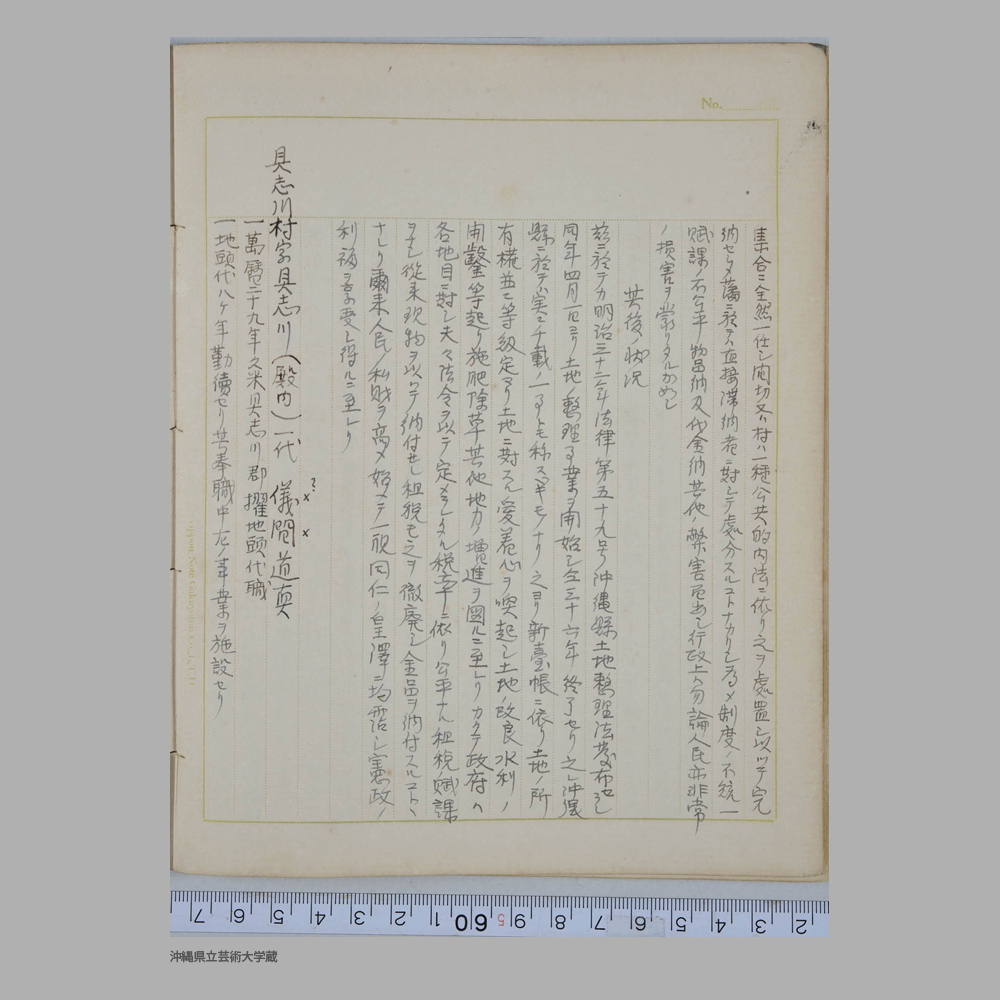 No.
集合ニ全然一任シ間切又ハ村ハ一種公共的内法ニ依リ之ヲ處置シ以ツテ完
納セシメ藩ニ於テ直接滞納者ニ對シテ處分スルコトナカリシ為メ制度ノ不統一
賦課ノ不公平物品納及代金納其他ノ弊害百出シ行政上ハ勿論人民亦非常
ノ損害ヲ蒙リタルカ如シ
其後ノ狀況
茲ニ於テカ明治三十二年法律第五十九号沖縄縣土地整理法發布セラレ
同年四月一日ヨリ土地整理事業ヲ開始シ仝三十六年終了セリ之レ沖縄
縣ニ於テハ実ニ千載ノ一事トモ称スベキモノナリ之ヨリ新臺帳ニ依リ土地ノ所
有権並ニ等級定マリ土地ニ對スル愛着心ヲ喚起シ土地ノ改良水利ノ
開鑿等起リ施肥除草其他地力ノ増進ヲ圖ルニ至レリカクテ政府ハ
各地目ニ對シ夫々法令ヲ以テ定メラレタル税率ニ依リ公平ナル租税ノ賦課
ヲナシ従来現物ヲ以ツテ納付セシ租税モ之ヲ徹廃シ金品ヲ納付スルコトヽ
ナレリ爾来人民ノ私財ヲ高メ始メテ一視同仁ノ皇澤ニ均霑シ憲政ノ
利福ヲ享受シ得ルニ至レリ
具志川村字具志川(殿内)一代 儀間道真
?
× ×
一萬暦二十九年久米具志川郡擢地頭代職
一地頭代八ケ年勤續セリ其奉職中左ノ事業ヲ施設セリ
7 6 5 4 3 2 1 60 5 9 8 7 6 5 4 3 2
沖縄県立芸術大学蔵